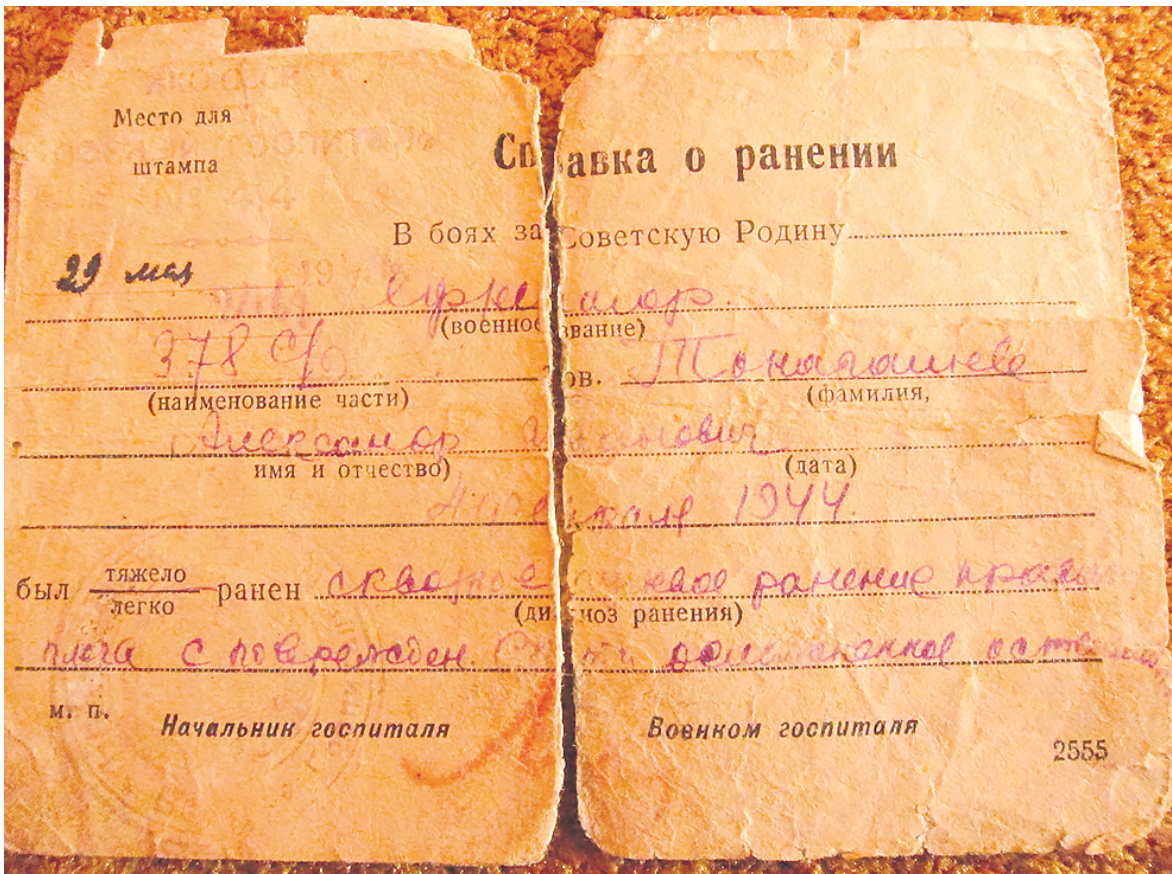 Место для
штампа
Справка о ранении
В боях за Советскую Родину
29 мая 19
Ефрейтор
(военное звание)
378 с/п тов.
(наименование части) (фамилия,
Александр Иванович
имя и отчество) (дата)
4 февраля 1944.
был тяжело
легко ранен сквозное пулевое ранение правого
(диагноз ранения)
плеча с поврежден. кости осложненное
м. п. Начальник госпиталя Военком госпиталя
2555